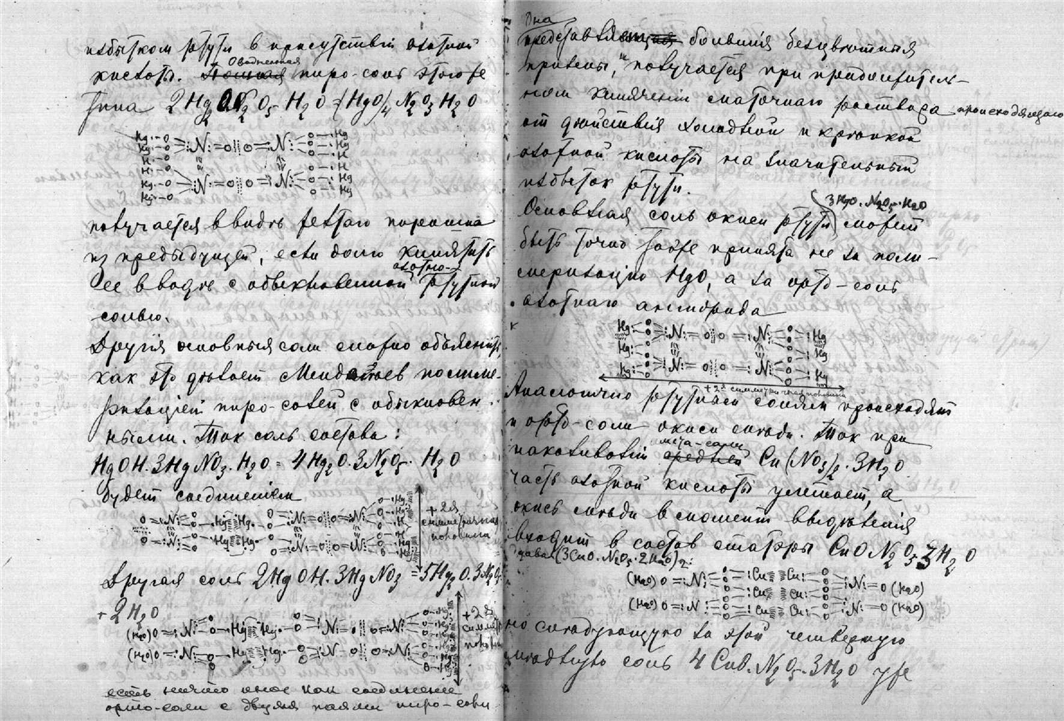 избытком ртути в присутствіи азотной
кислоты. Однометальная пиро-соль этого же
типа 2Hg2O N2O5 H2O = (HgO)4 N2O3 H2O
получается в видѣ желтаго порошка
из предыдущей, если долго кипятить
ее в водѣ с обыкновенной азотно-ртутной
солью.
Другія основныя соли можно объяснить
как это дѣлает Менделѣев полиме-
ризаціей пиро-солей с обыкновен-
ными. Так соль состава:
HgOH·3HgNO3·H2O = 4Hg2O·3N2O5·H2O
будет соединеніем
+ 2ая симметричная половина
Другая соль 2HgOH·3HgNO3 = 5Hg2O·3N2O5
+ 2H2O
+ 2я симмет. полов.
есть ничто иное как соединеніе
орто-соли с двумя паями пиро-соли
Она
представляет большія безцвѣтныя
призмы, и получается при продолжитель-
ном кипяченіи маточнаго раствора происходящаго
от дѣйствія холодной и крѣпкой
азотной кислоты на значительный
избыток ртути.
Основная соль окиси ртути 3HgO·N2O5·H2O может
быть точно также принята не за поли-
меризацію HgO, а за орто-соль
азотнаго ангидрида
+ 2я симметричная половина
Аналогично ртутным солям происходят
и орто-соли окиси мѣди. Так при
накаливаніи средней Cu(NO3)2·3H2O
часть азотной кислоты улетает, а
окись мѣди в момент выдѣленія
входит в состав молекулы CuO N2O5 3H2O
давая (3CuO·N2O5·2H2O)2:
(H2O)O O(H2O)
(H2O)O O(H2O)
но слѣдующую за этой четверную
мѣдную соль 4CuO·N2O5·3H2O уже